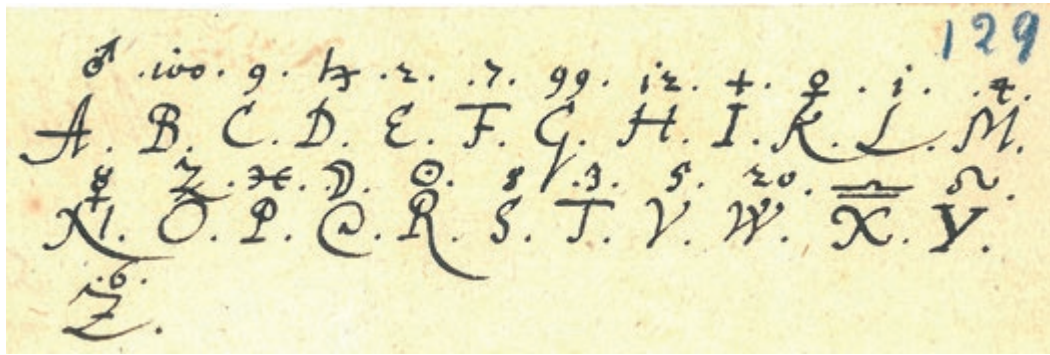 129
♂ .i00. 9. ♄ .2. .7. 99. i2. +. ♀ . i. .4.
A. B. C. D. E. F. G. H. I. K. L. M.
☿ ♃. ♓. ☽. ☉. 8 .3. 5. 20. ♎ ♌.
N. O. P. Q. R. S. T. V. W. X. Y.
.6.
Z.